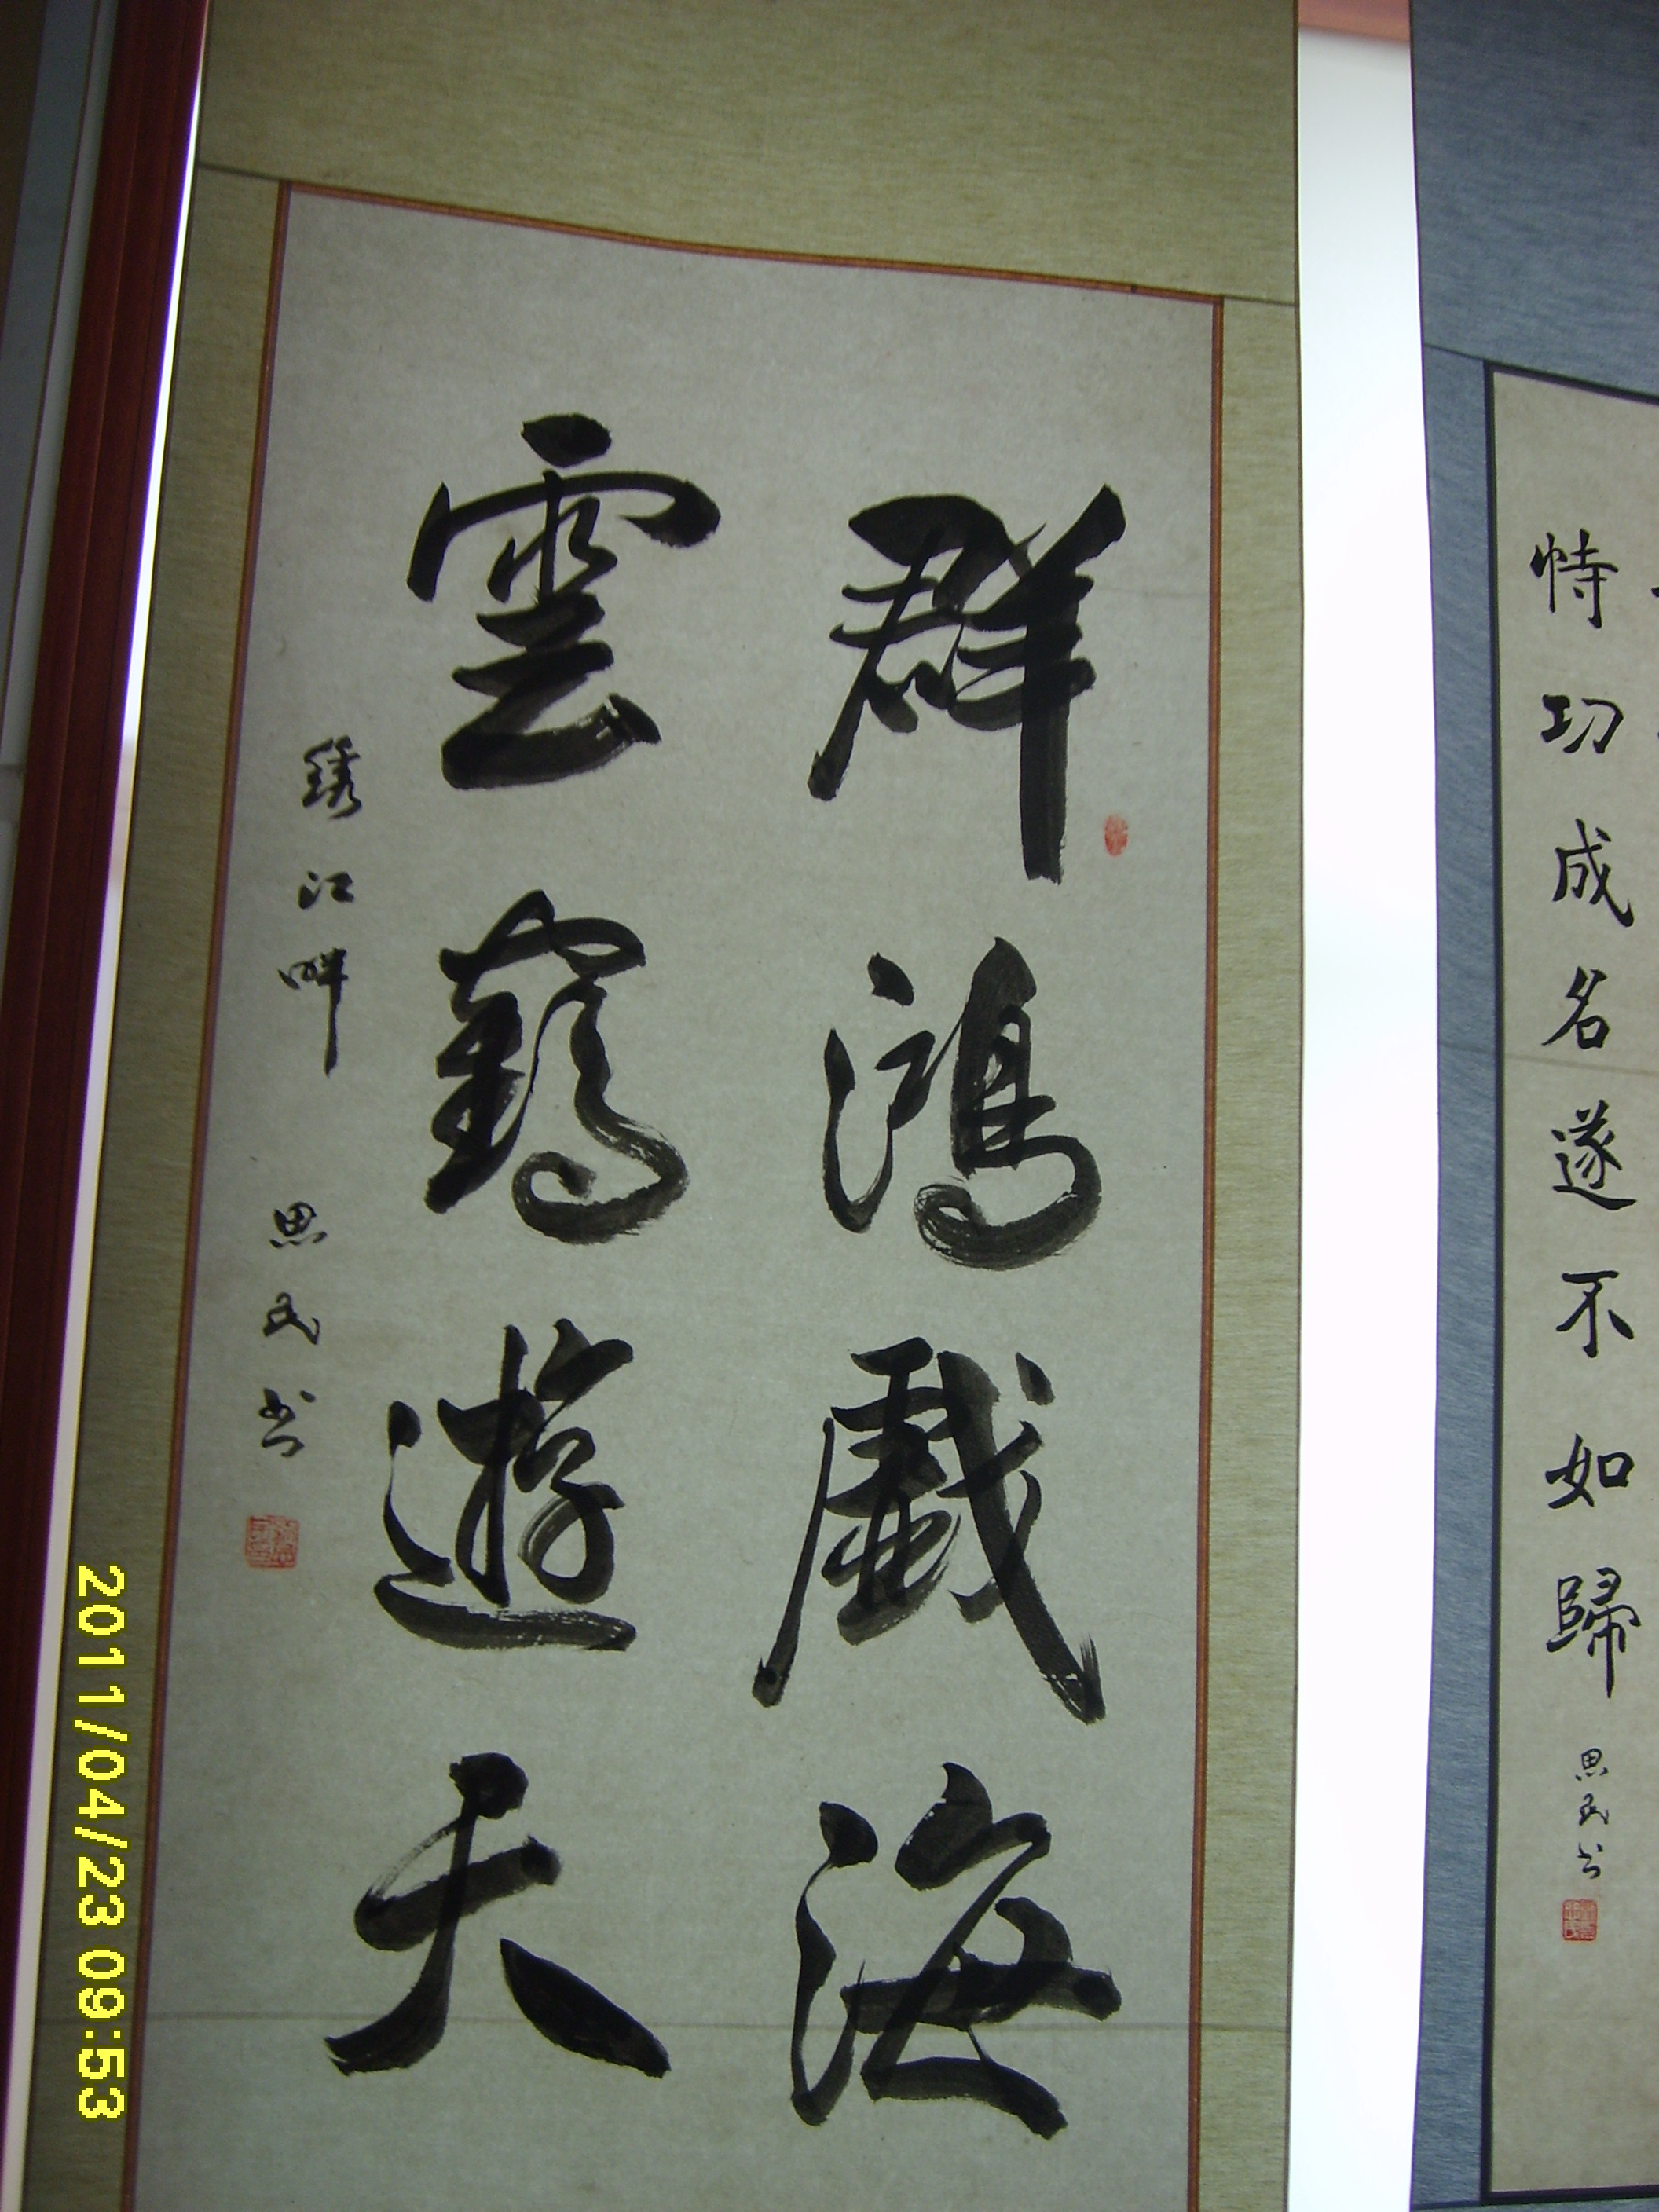 群鴻戲海
雲鶴遊天
绣江畔 思民书
恃功成名遂不如歸
思民书
2011/04/23 09:53